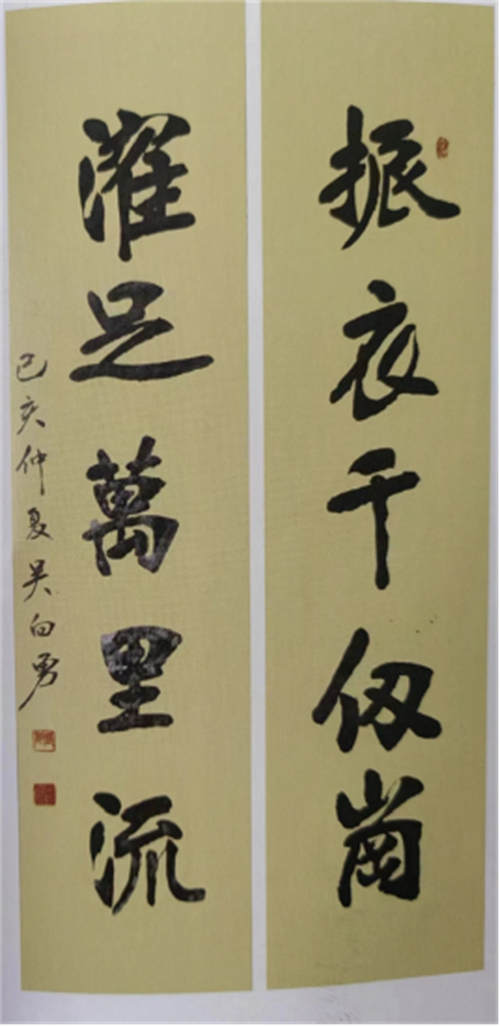 振衣千仞崗
濯足萬里流
己亥仲夏吴白勇